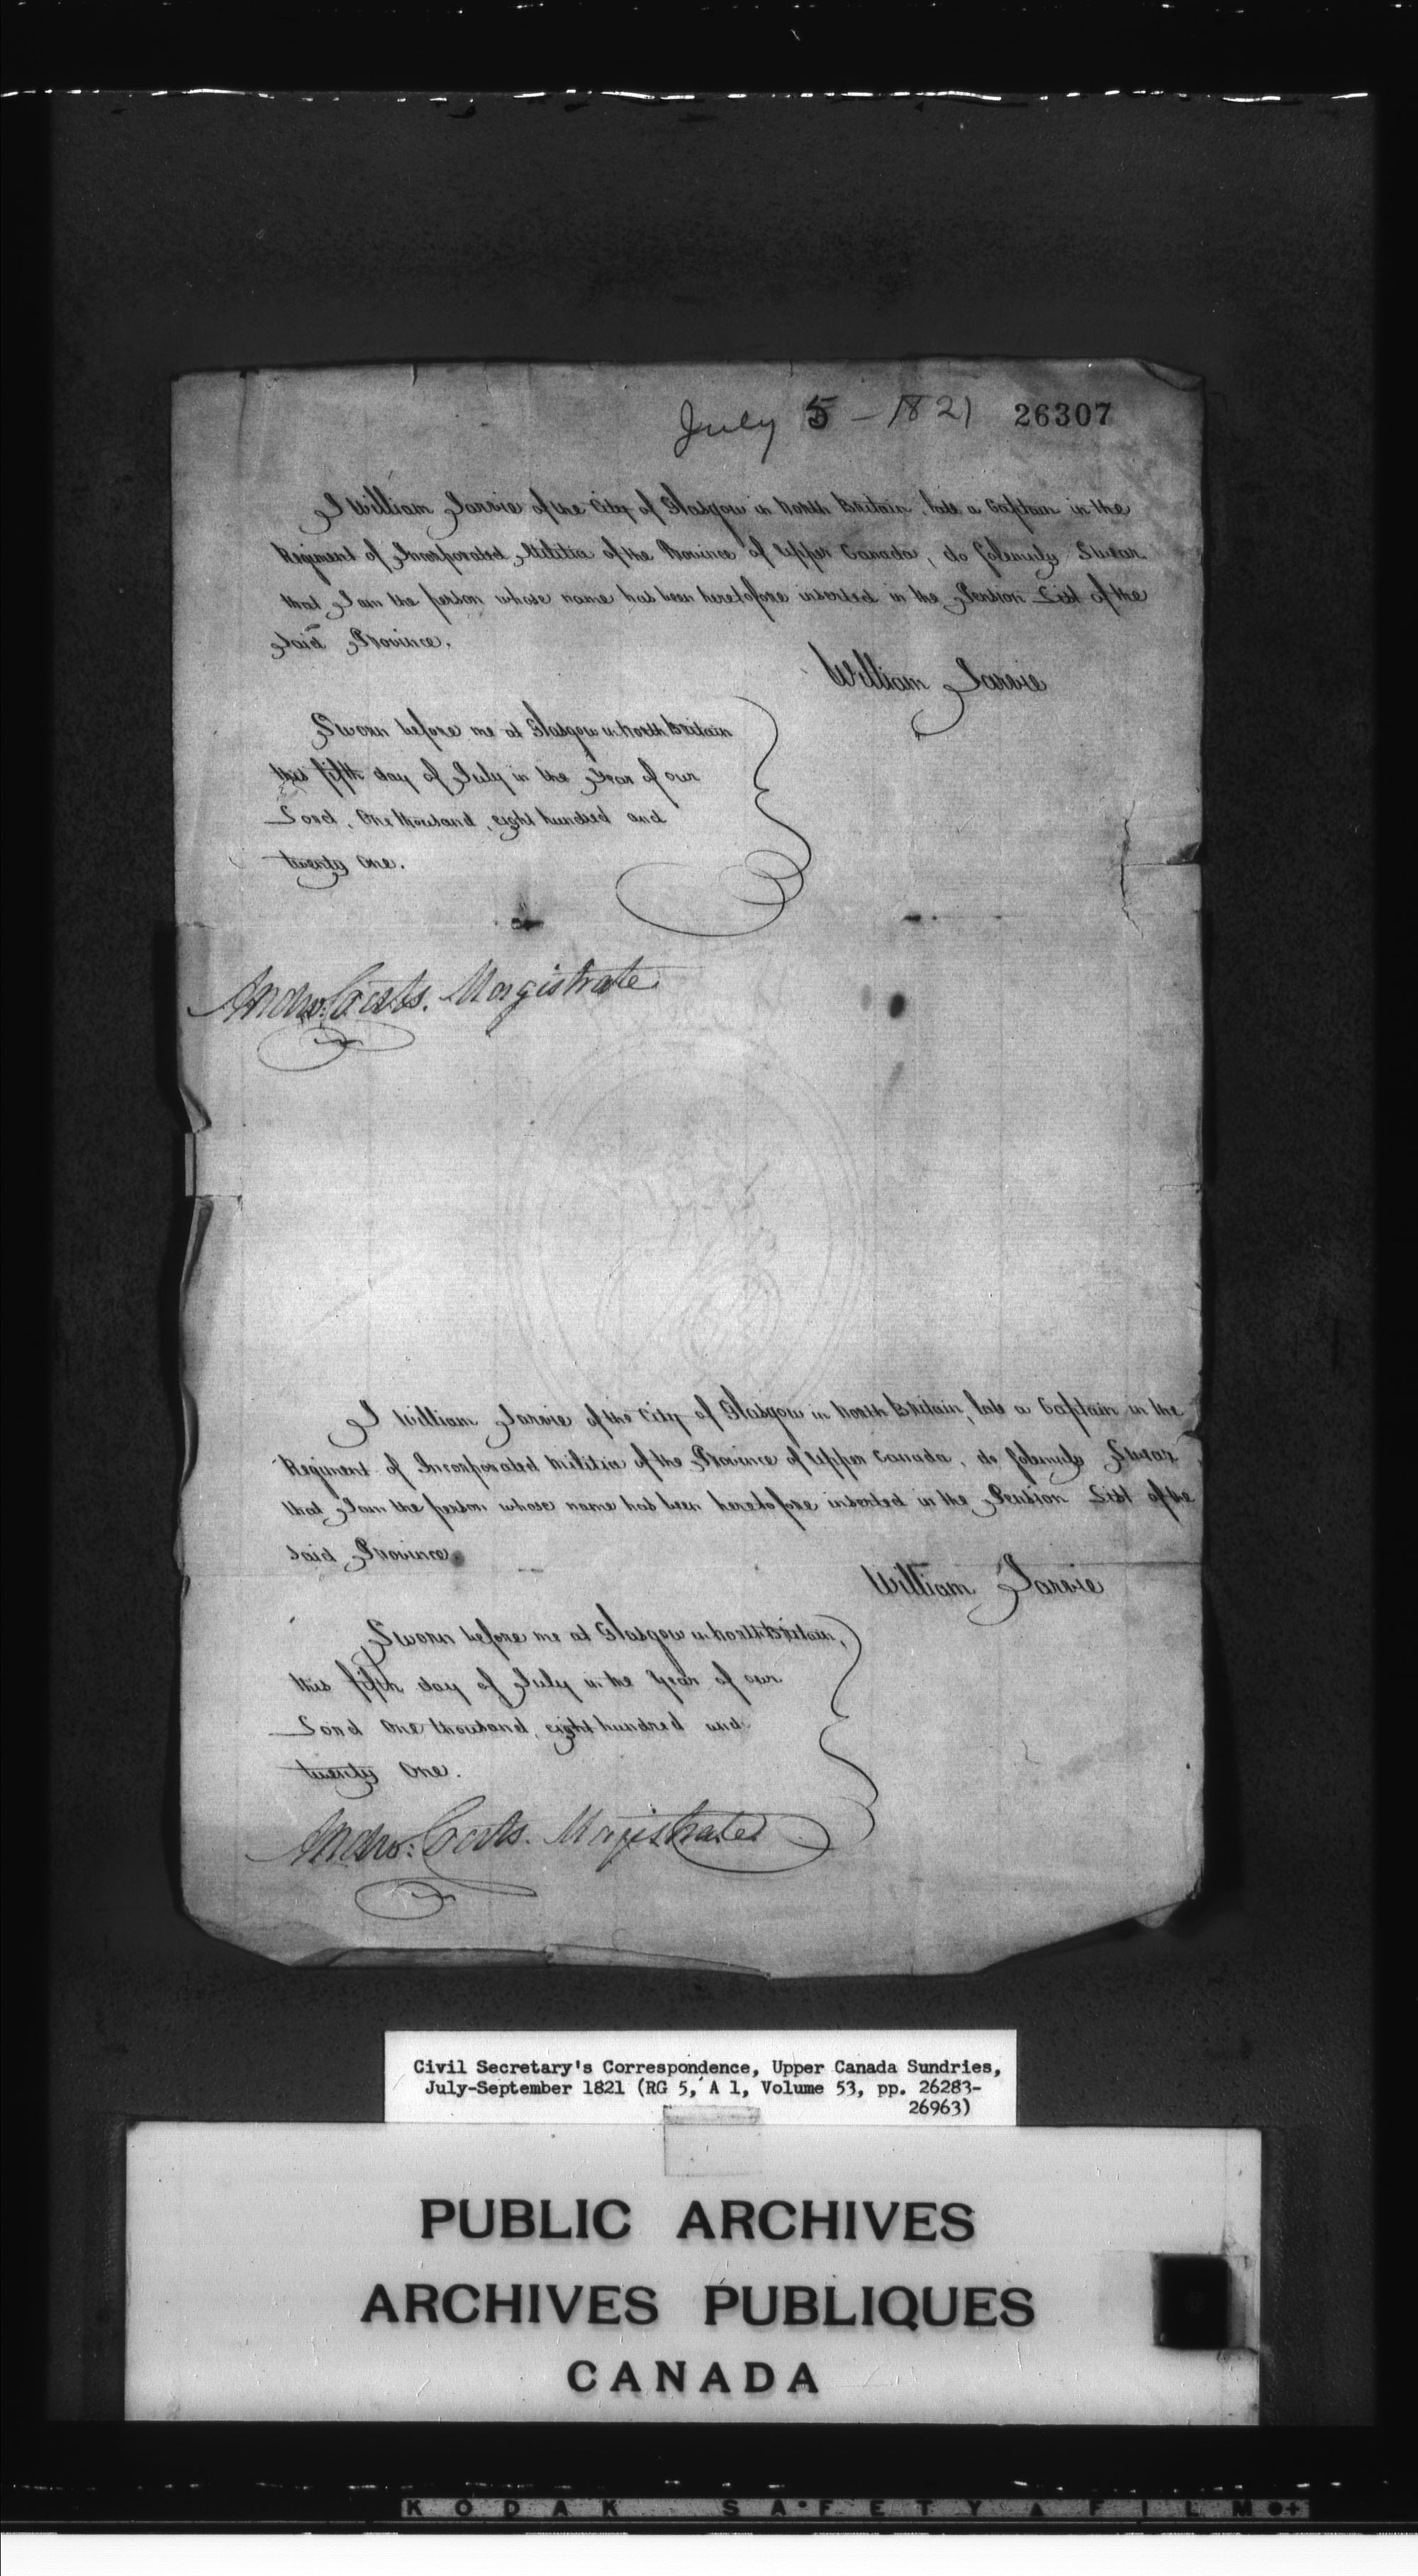 July 5 - 1821 26307
I William Jarvie of the City of Glasgow in North Britain, late a Captain in the
Regiment of Incorporated Militia of the Province of Upper Canada, do Solemnly Swear
that I am the person whose name has been heretofore inserted in the Pension List of the
Said Province.
William Jarvie
Sworn before me at Glasgow in North Britain
this fifth day of July in the Year of our
Lord, One thousand, eight hundred and
twenty One.
Andw: Coats. Magistrate
I William Jarvie of the City of Glasgow in North Britain, late a Captain in the
Regiment of Incorporated Militia of the Province of Upper Canada, do Solemnly Swear
that I am the person whose name has been heretofore inserted in the Pension List of the
said Province.
William Jarvie
Sworn before me at Glasgow in North Britain,
this fifth day of July in the Year of our
Lord One thousand, eight hundred and
twenty One.
Andw: Coats. Magistrate
Civil Secretary's Correspondence, Upper Canada Sundries,
July-September 1821 (RG 5, A 1, Volume 53, pp. 26283-
26963)
PUBLIC ARCHIVES
ARCHIVES PUBLIQUES
CANADA
KODAK SAFETY FILM